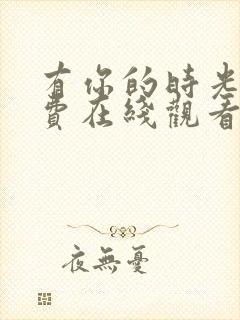 有你的時光
費在綫觀看
夜無憂